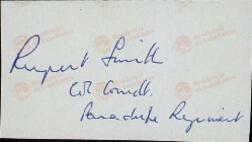 Rupert Smith
Col Comdt.
Parachute Regiment